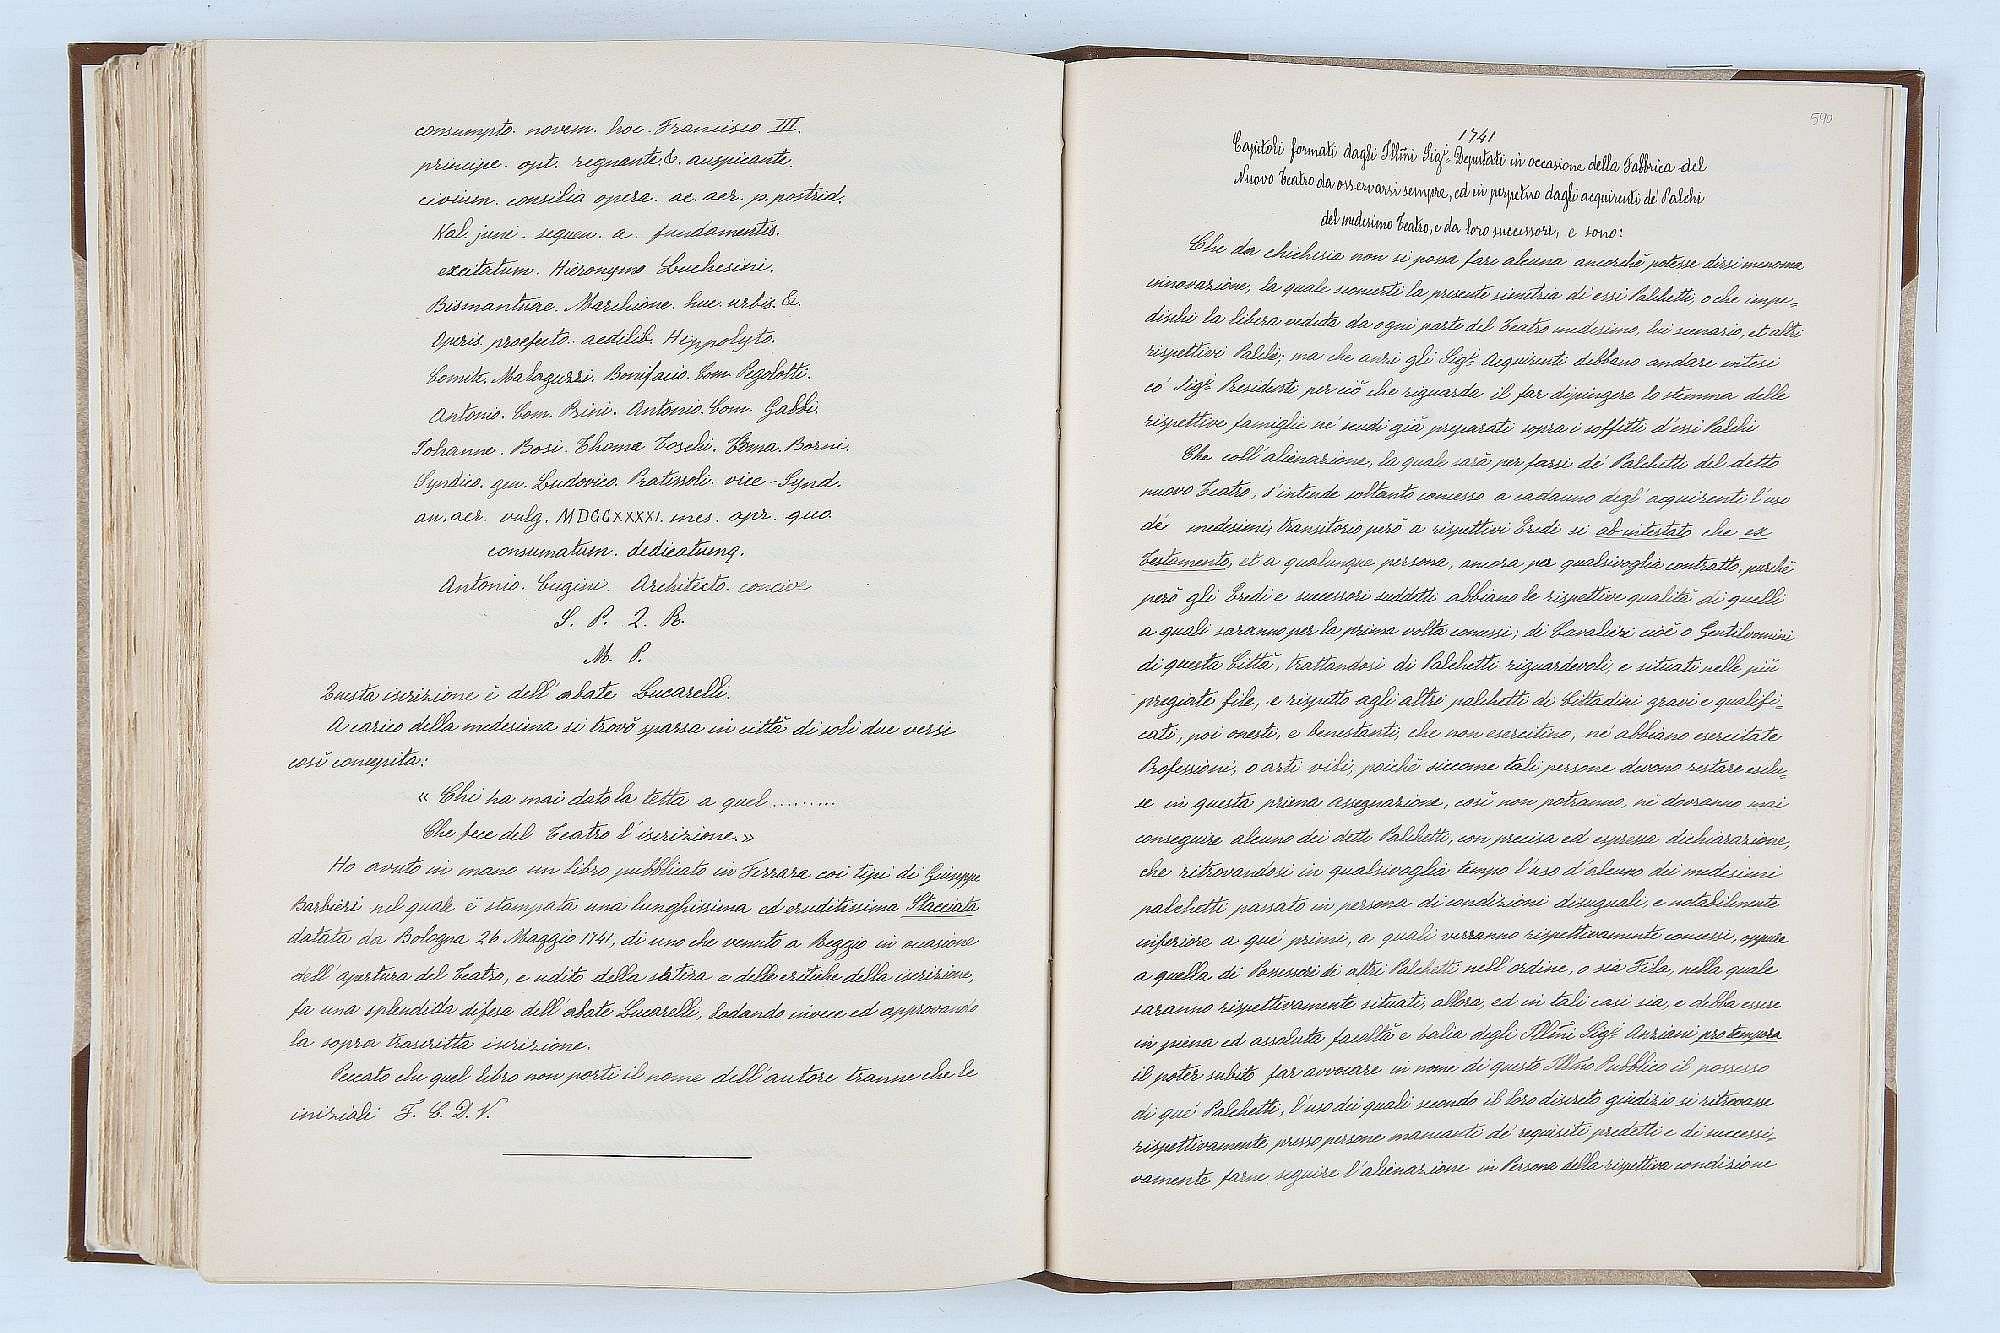 consumpto. novem. hoc. Francisco III.
principe. opt. regnante. &. auspicante.
civium. consilia opera. ac. aer. p. postrid.
Kal. june. sequen. a. fundamentis.
excitatum. Hieronymo Luchesini.
Bismantuae. Marchione. huc. urbis. &.
Operis proefecto. aedilib. Hippolyto.
Comite. Malaguzzi. Bonifacio. Com. Pegolotti.
Antonio. Com. Prini. Antonio. Com. Gabbi.
Johanne. Bosi. Thoma Toschi. Borni.
Syndico. gen. Ludovico. Pratissoli. vice-Synd.
an. aer. vulg. MDCCXXXXI. mes. apr. quo.
consumatum. dedicatumq.
Antonio. Cugini. Architecto. concive
S. P. Q. R.
M. P.
Questa iscrizione è dell'abate Lucarelli.
A carico della medesima si trovò sparsa in città di soli due versi
così concepita:
« Chi ha mai dato la tetta a quel .........
Che fece del Teatro l'iscrizione.»
Ho avuto in mano un libro pubblicato in Ferrara coi tipi di Giuseppe
Barbieri nel quale è stampata una lunghissima ed eruditissima Stacciata
datata da Bologna 26 Maggio 1741, di uno che venuto a Reggio in occasione
dell'apertura del Teatro, e udito della satira e delle critiche della iscrizione,
fa una splendida difesa dell'abate Lucarelli, lodando invece ed approvando
la sopra trascritta iscrizione.
Peccato che quel libro non porti il nome dell'autore tranne che le
iniziali F. C. D. V.
590
1741
Capitoli formati dagli Illmi Sigri Deputati in occasione della Fabbrica del
Nuovo Teatro da osservarsi sempre, ed in perpetuo dagli acquirenti de' Palchi
del medesimo Teatro, e da loro successori, e sono:
Che da chichesia non si possa fare alcuna ancorchè potesse dirsi menoma
innovazione, la quale sconcerti la presente simetria di essi Palchetti, o che impe-
dischi la libera veduta da ogni parte del Teatro medesimo, lui scenario, et altri
rispettivi Palchi; ma che anzi gli Sigri Acquirenti debbano andare intesi
co' Sigri Presidenti per ciò che riguarda il far dipingere lo stemma delle
rispettive famiglie ne' scudi già preparati sopra i soffitti d'essi Palchi
Che coll'alienazione, la quale sarà per farsi de' Palchetti del detto
nuovo Teatro, s'intende soltanto concesso a cadauno degl'acquirenti l'uso
de' medesimi, transitorio però a rispettivi Eredi si ab intestato che ex
Testamento, et a qualunque persona, ancora per qualsivoglia contratto, purchè
però gli Eredi e successori suddetti abbiano le rispettive qualità di quelli
a quali saranno per la prima volta concessi; di Cavalieri cioè o Gentiluomini
di questa Città, trattandosi di Palchetti riguardevoli, e situati nelle più
pregiate file, e rispetto agli altri palchetti de Cittadini gravi e qualifi-
cati, poi onesti, e benestanti, che non esercitino, nè abbiano esercitate
Professioni, o arti vili, poichè siccome tali persone devono restare esclu-
se in questa prima assegnazione, così non potranno, nè dovranno mai
conseguire alcuno dei detti Palchetti, con precisa ed espressa dichiarazione,
che ritrovandosi in qualsivoglia tempo l'uso d'alcuno dei medesimi
palchetti passato in persona di condizioni disuguali, e notabilmente
inferiore a que' primi, a quali verranno rispettivamente concessi, oppure
a quella di Possessori di altri Palchetti nell'ordine, o sia Fila, nella quale
saranno rispettivamente situati, allora, ed in tali casi sia, e debba essere
in piena ed assoluta facoltà e balia degli Illmi Sigri Anziani pro tempore
il poter subito far avvocare in nome di questo Illmo Pubblico il possesso
di que' Palchetti, l'uso dei quali secondo il loro discreto giudizio si ritrovasse
rispettivamente presso persone mancanti de' requisiti predetti e di successi-
vamente farne seguire l'alienazione in Persona della rispettiva condizione